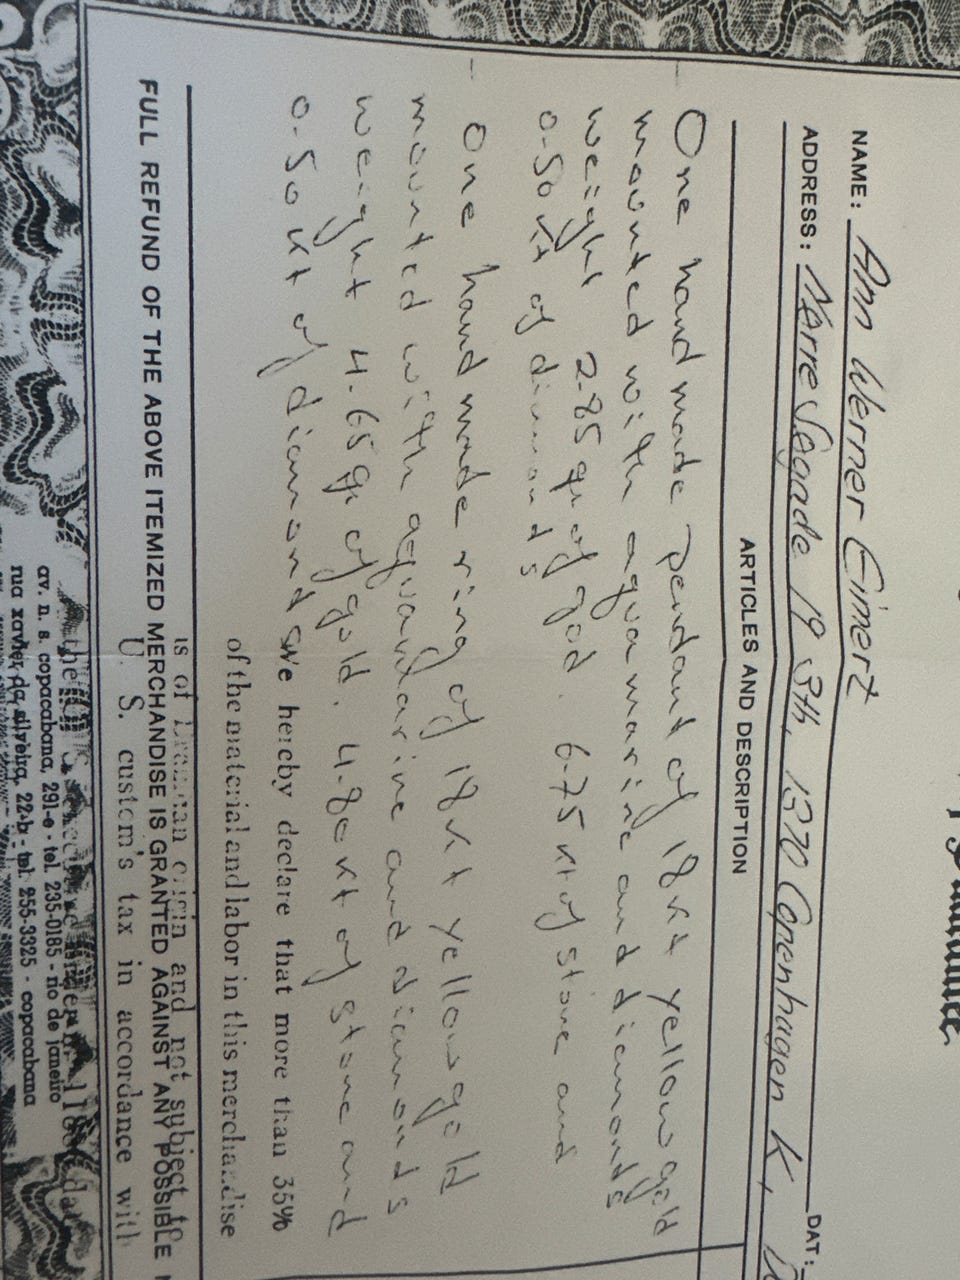 NAME: Ann Werner Einert
ADDRESS: Nørre Søgade 19 3th, 1370 Copenhagen K,
DAT:
ARTICLES AND DESCRIPTION
- One hand made pendant of 18kt yellow gold
mounted with aquamarine and diamonds
weight 2.85 gr of god. 6.75 kt of stone and
0.50 kt of diamonds
- One hand made ring of 18kt yellow gold
mounted with aquamarine and diamonds
weight 4.65 gr of gold. 4.80 kt of stone and
0.50 kt of diamond
We hereby declare that more than 35%
of the material and labor in this merchandise
is of origin and not subject to
U. S. custom's tax in accordance with
FULL REFUND OF THE ABOVE ITEMIZED MERCHANDISE IS GRANTED AGAINST ANY POSSIBLE
the
av. n. s. copacabana, 291-e - tel. 235-0185 - rio de janeiro
rua xavier da silveira, 22-b - tel. 255-3325 - copacabana